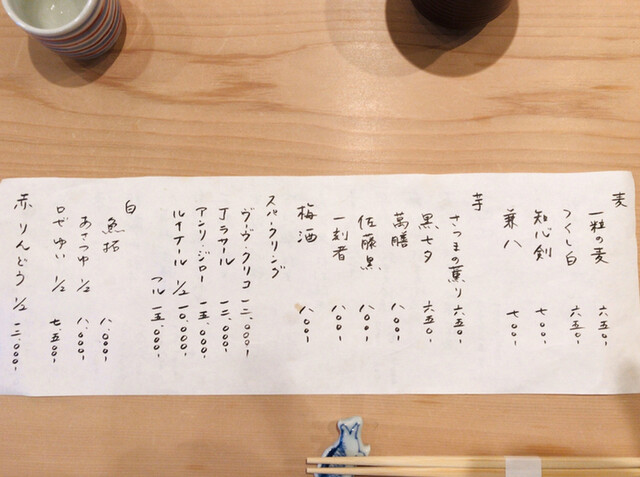 麦
一粒の麦 六五〇-
つくし白 六五〇-
知心剣 七〇〇-
兼八 七〇〇-
芋
さつまの薫り 六五〇-
黒七夕 六五〇-
萬膳 八〇〇-
佐藤黒 八〇〇-
一刻者 八〇〇-
梅酒 八〇〇-
スパークリング
ヴーヴ・クリコ 一二、〇〇〇-
Jラサール 一二、〇〇〇-
アンリ・ジロー 一五、〇〇〇-
ルイナール 1/2 一〇、〇〇〇-
フル 一五、〇〇〇-
白
魚拓 八、〇〇〇-
あさつゆ 1/2 八、〇〇〇-
ロゼ ゆい 1/2 七、五〇〇-
赤 りんどう 1/2 一二、〇〇〇-